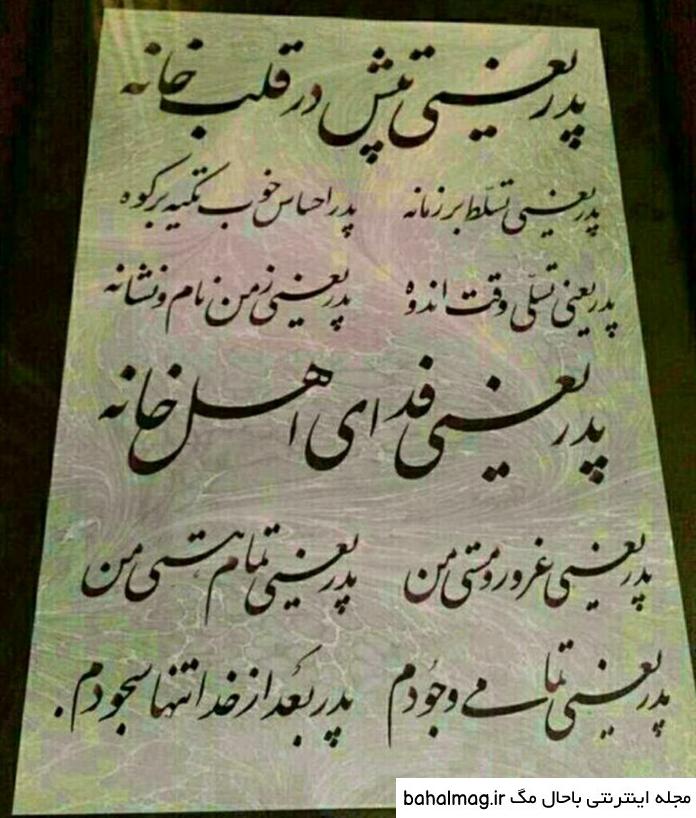 پدر یعنی تپش در قلب خانه
پدر یعنی تسلّط بر زمانه پدر احساس خوب تکیه بر کوه
پدر یعنی تسلّی وقت اندوه پدر یعنی ز من نام و نشانه
پدر یعنی فدای اهل خانه
پدر یعنی غرور و مستی من پدر یعنی تمام هستی من
پدر یعنی تمامی وجودم پدر بعد از خدا تنها سجودم.
مجله اینترنتی باحال مگ bahalmag.ir